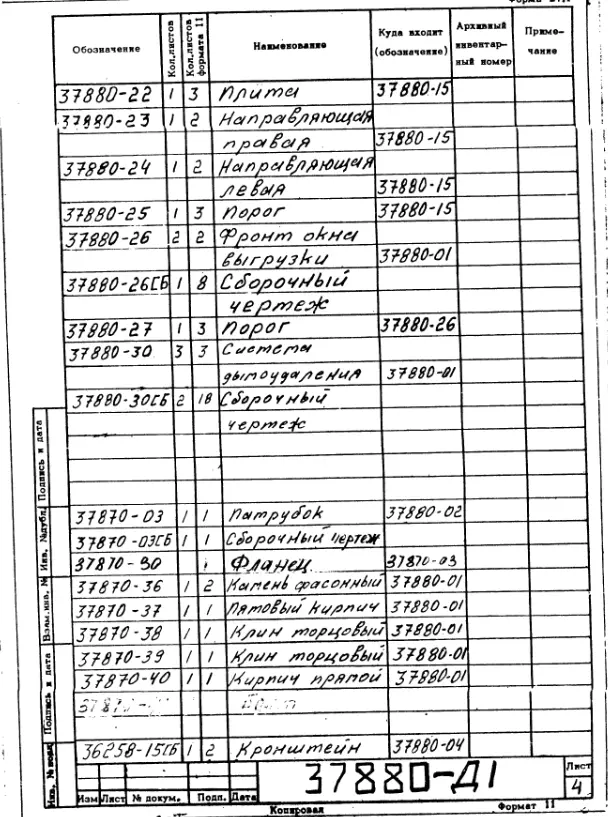 Обозначение Кол.листов Кол.листов формата 11 Наименование Куда входит (обозначение) Архивный инвентарный номер Примечание
37880-22 1 3 Плита 37880-15
37880-23 1 2 Направляющая
правая 37880-15
37880-24 1 2 Направляющая
левая 37880-15
37880-25 1 3 Порог 37880-15
37880-26 2 2 Фронт окна
выгрузки 37880-01
37880-26СБ 1 8 Сборочный
чертеж
37880-27 1 3 Порог 37880-26
37880-30 3 3 Система
дымоудаления 37880-01
37880-30СБ 2 18 Сборочный
чертеж
37870-03 1 1 Патрубок 37880-02
37870-03СБ 1 1 Сборочный чертеж
37870-30 1 Фланец 37870-03
37870-36 1 2 Камень фасонный 37880-01
37870-37 1 1 Пятовый кирпич 37880-01
37870-38 1 1 Клин торцовый 37880-01
37870-39 1 1 Клин торцовый 37880-01
37870-40 1 1 Кирпич прямой 37880-01
36258-15СБ 1 2 Кронштейн 37880-04
37880-Д1
Лист
4
Изм Лист № докум. Подп. Дата
Копировал Формат 11
Подпись и дата
Инв. № дубл.
Взам. инв. №
Подпись и дата
Инв. № подл.